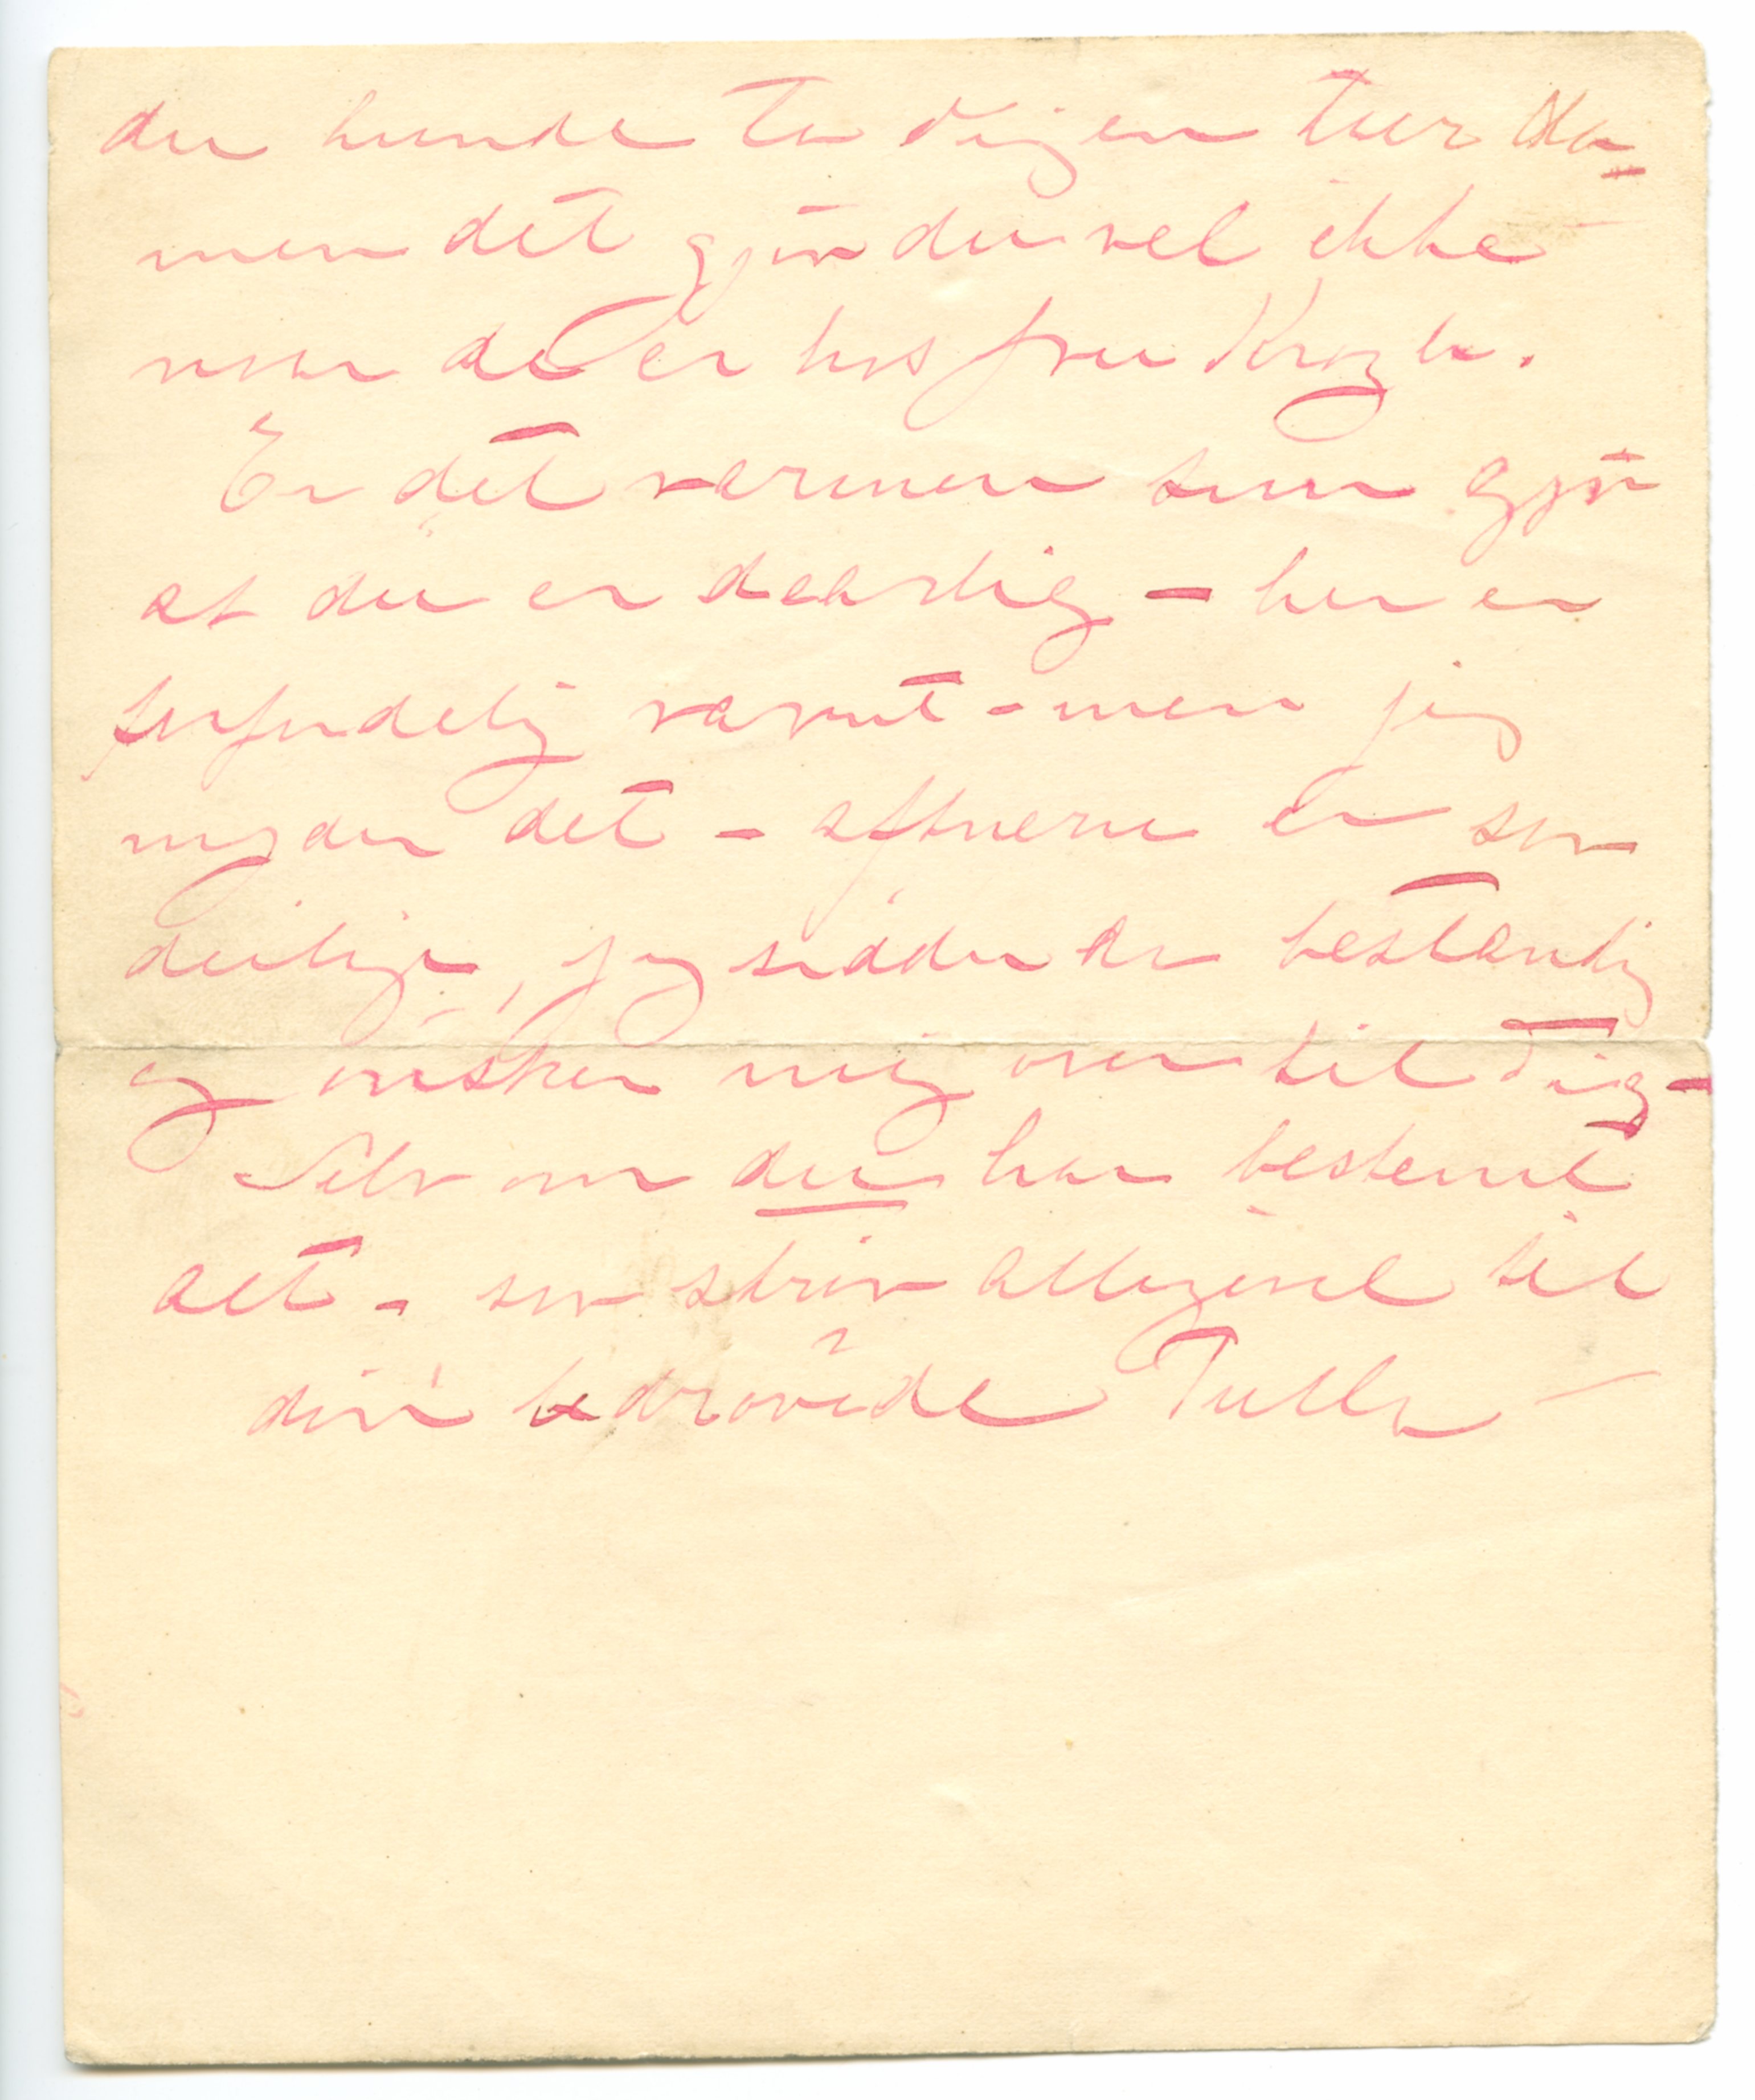 du kunde ta digen tur da
men det gjör du vel ikke
naar det er hos fru Krogh.
Er det varmen som gjör
at du er daarlig – her er
forfærdelig varmt – men jeg
nyder det – aftnerne er saa
deilige, jeg sidder da bestandig
og önsker mig over til Dig –
Selv om du har bestemt
alt – saa skriv alligevel til
din bedrövede Tulla –